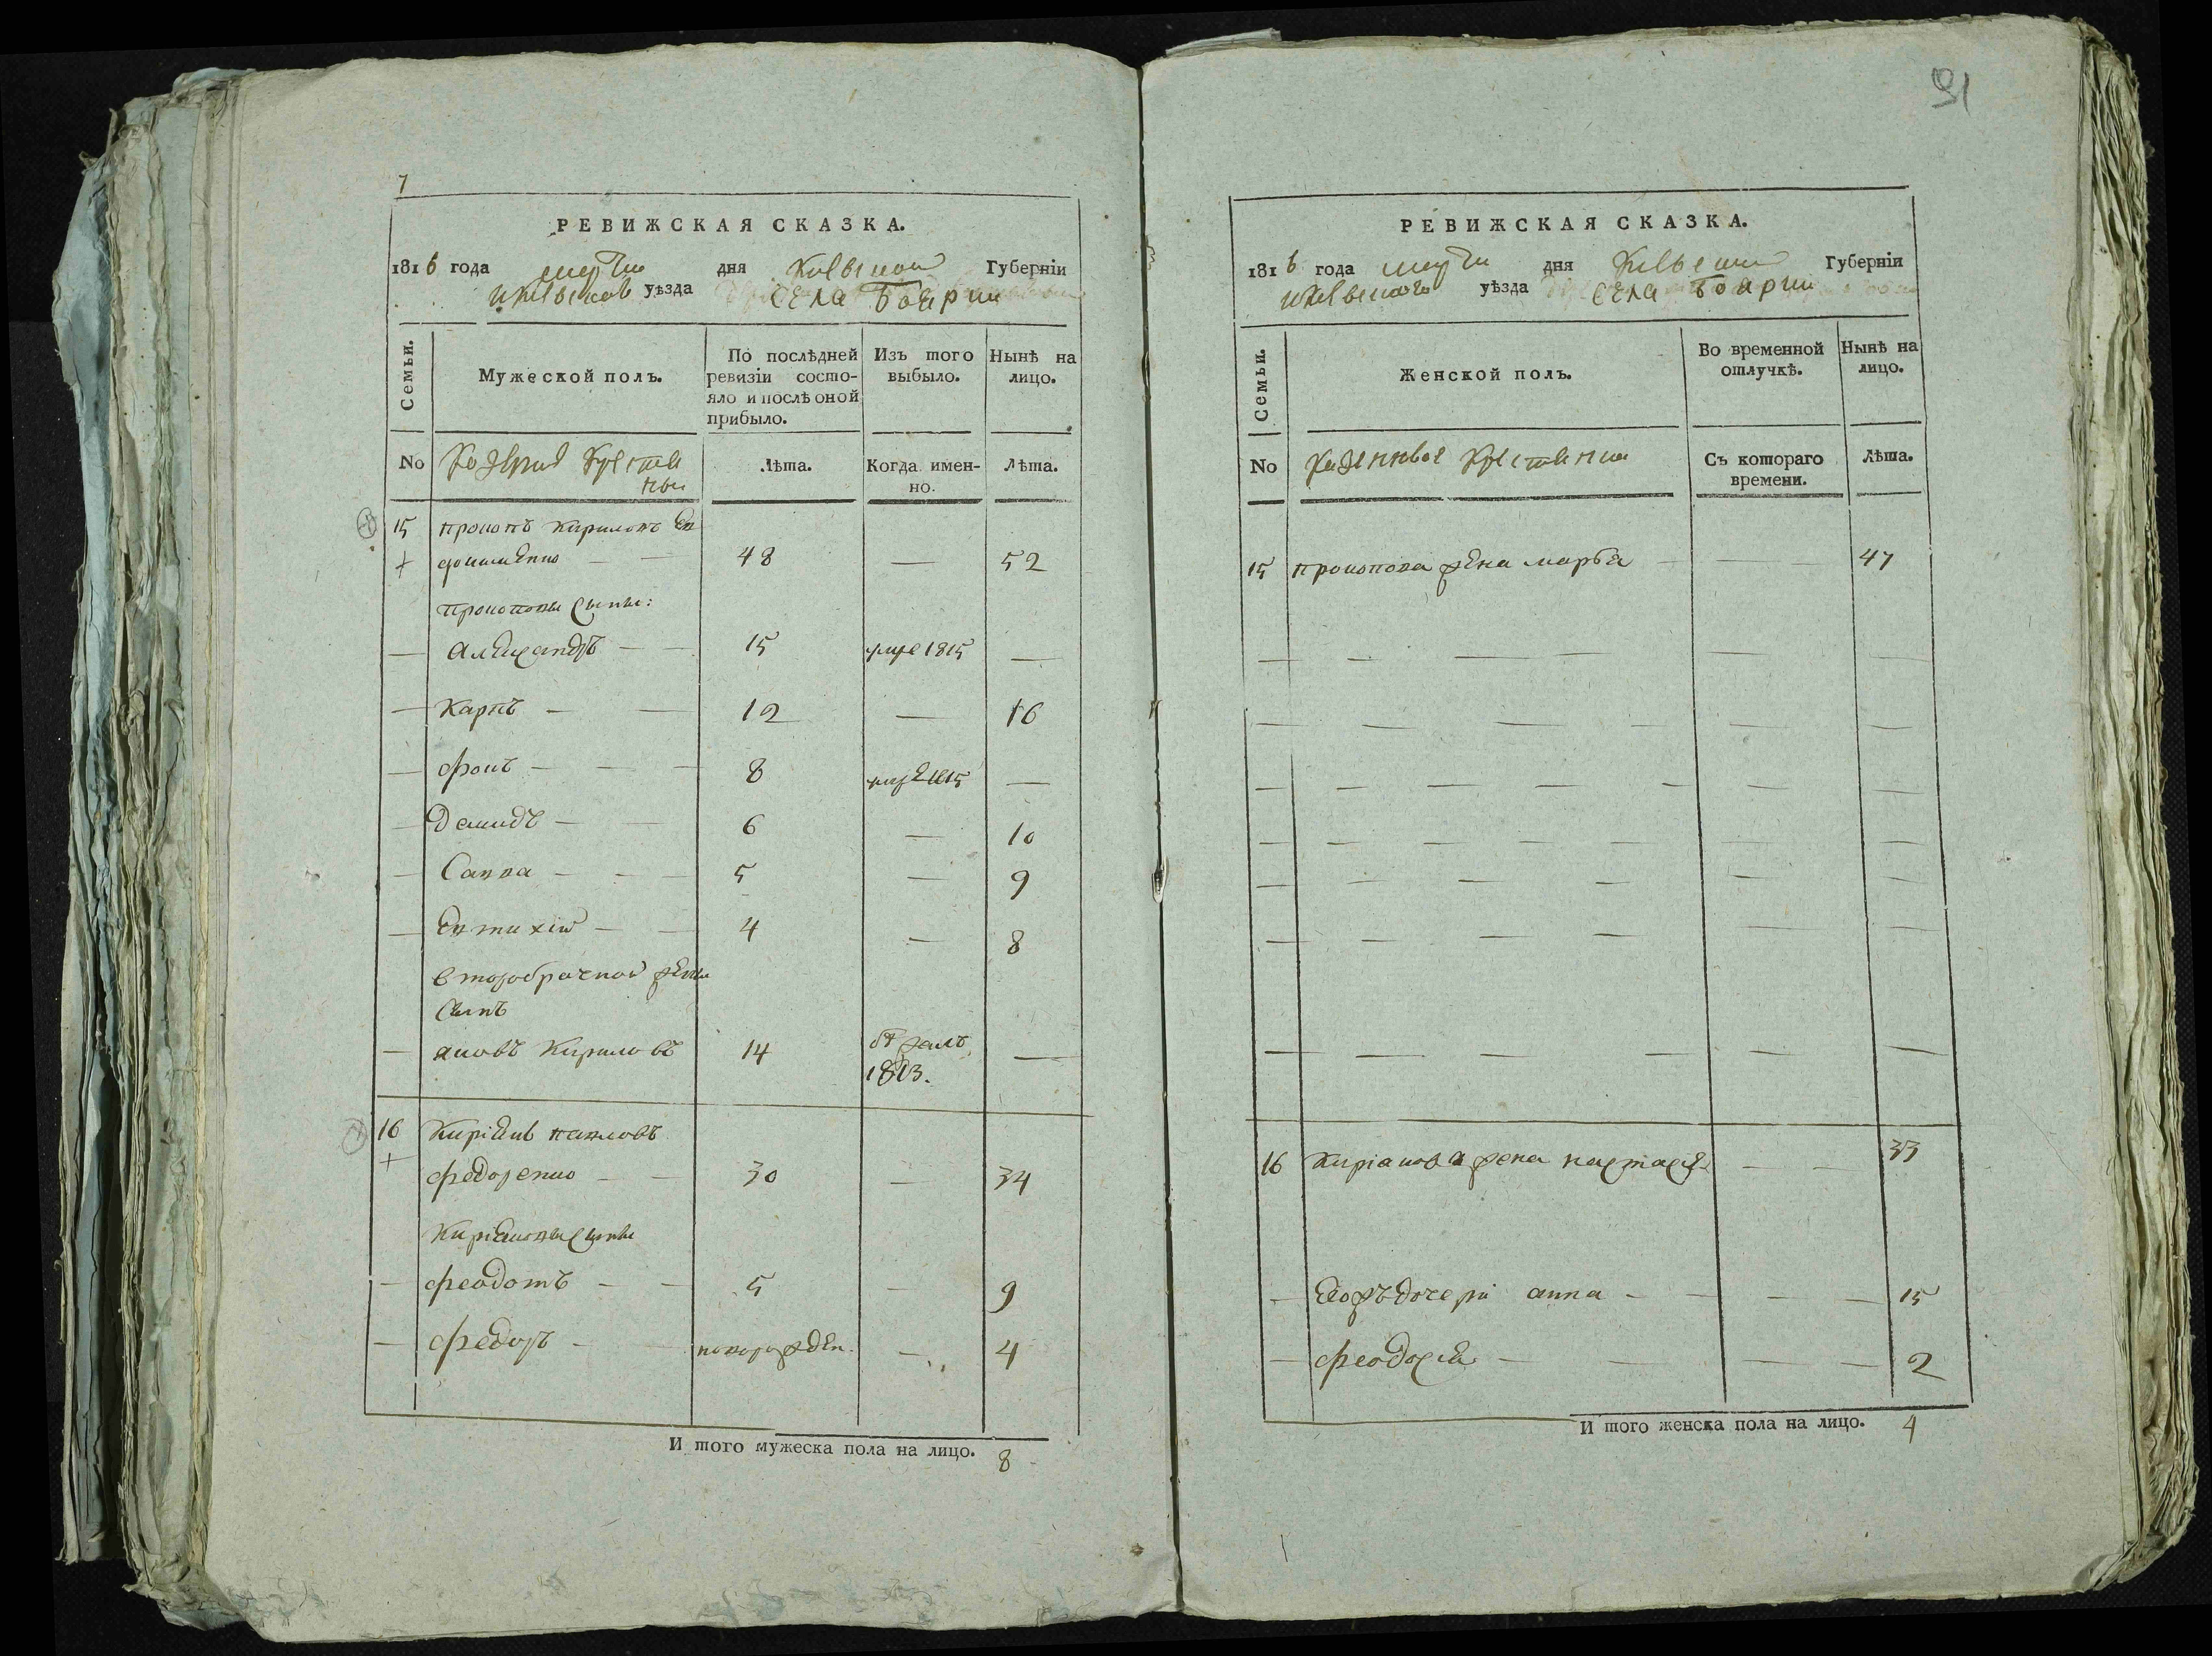 7
РЕВИЖСКАЯ СКАЗКА.
1816 года марта дня Киевской Губернїи
и Киевскаго уѣзда села Боярки
Семьи.
Мужеской полъ.
По послѣдней ревизїи состо-
яло и послѣ оной
прибыло.
Изъ того
выбыло.
Нынѣ на
лицо.
No
Казенные крестья
ны
Лѣта.
Когда имен-
но.
Лѣта.
15 прокопъ кириловъ Ев
докименко — — 48 — 52
прокоповы сыны:
— Александръ — — 15 умре 1815 —
— карпъ — — 12 — 16
— фокъ — — — 8 умре 1815 —
— Демидъ — — 6 — 10
— Савва — — — 5 — 9
— Евтихїй — — 4 — 8
второбрачной жены
сынъ
— яковъ Кириловъ 14 1813. —
16 Кирїякъ павловъ
федоренко — — 30 — 34
Кирїяковы сыны
— феодотъ — — 5 — 9
— федоръ — новорожден. — 4
И того мужеска пола на лицо. 8
91
РЕВИЖСКАЯ СКАЗКА.
1816 года марта дня Киевской Губернїи
и Киевскаго уѣзда села Боярки
Семьи.
Женской полъ.
Во временной
отлучкѣ.
Нынѣ на
лицо.
No
Казенные крестьянки
Съ котораго
времени.
Лѣта.
15 прокопова жена марья — — 47
16 Кирїакова жена настасья — — 33
— Ево жъ дочери анна — — — — 15
— феодосїя — — — — 2
И того женска пола на лицо. 4